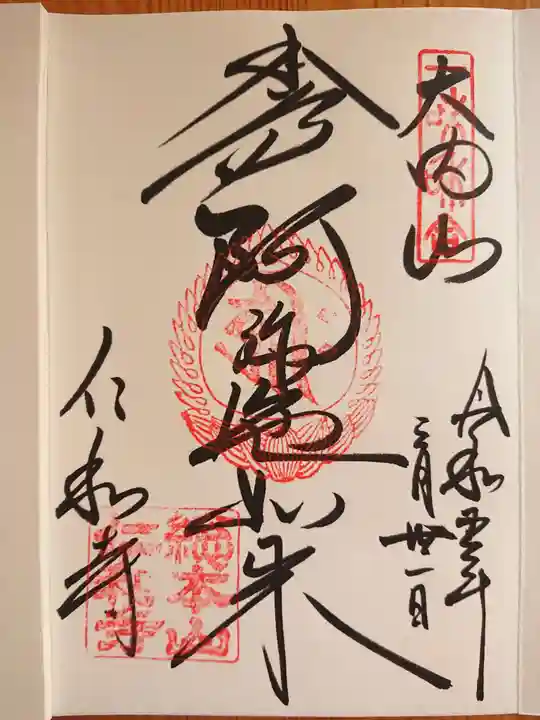 大内山
令和四年
三月廿一日
奉
阿弥陀如来
仁和寺
総本山
仁和寺